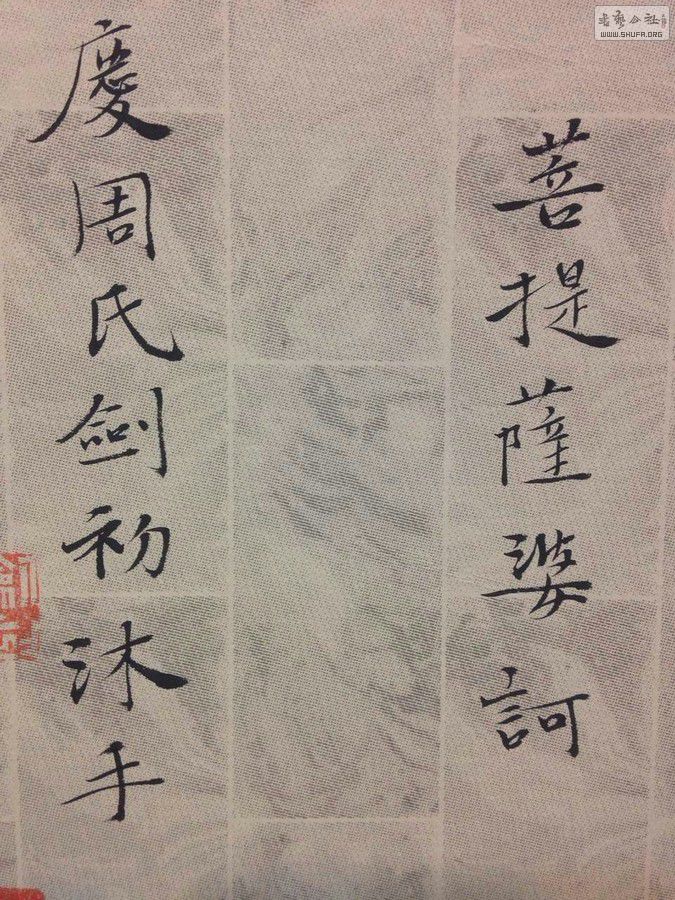 菩提薩婆訶
慶周氏劍初沐手
書艺公社
WWW.SHUFA.ORG